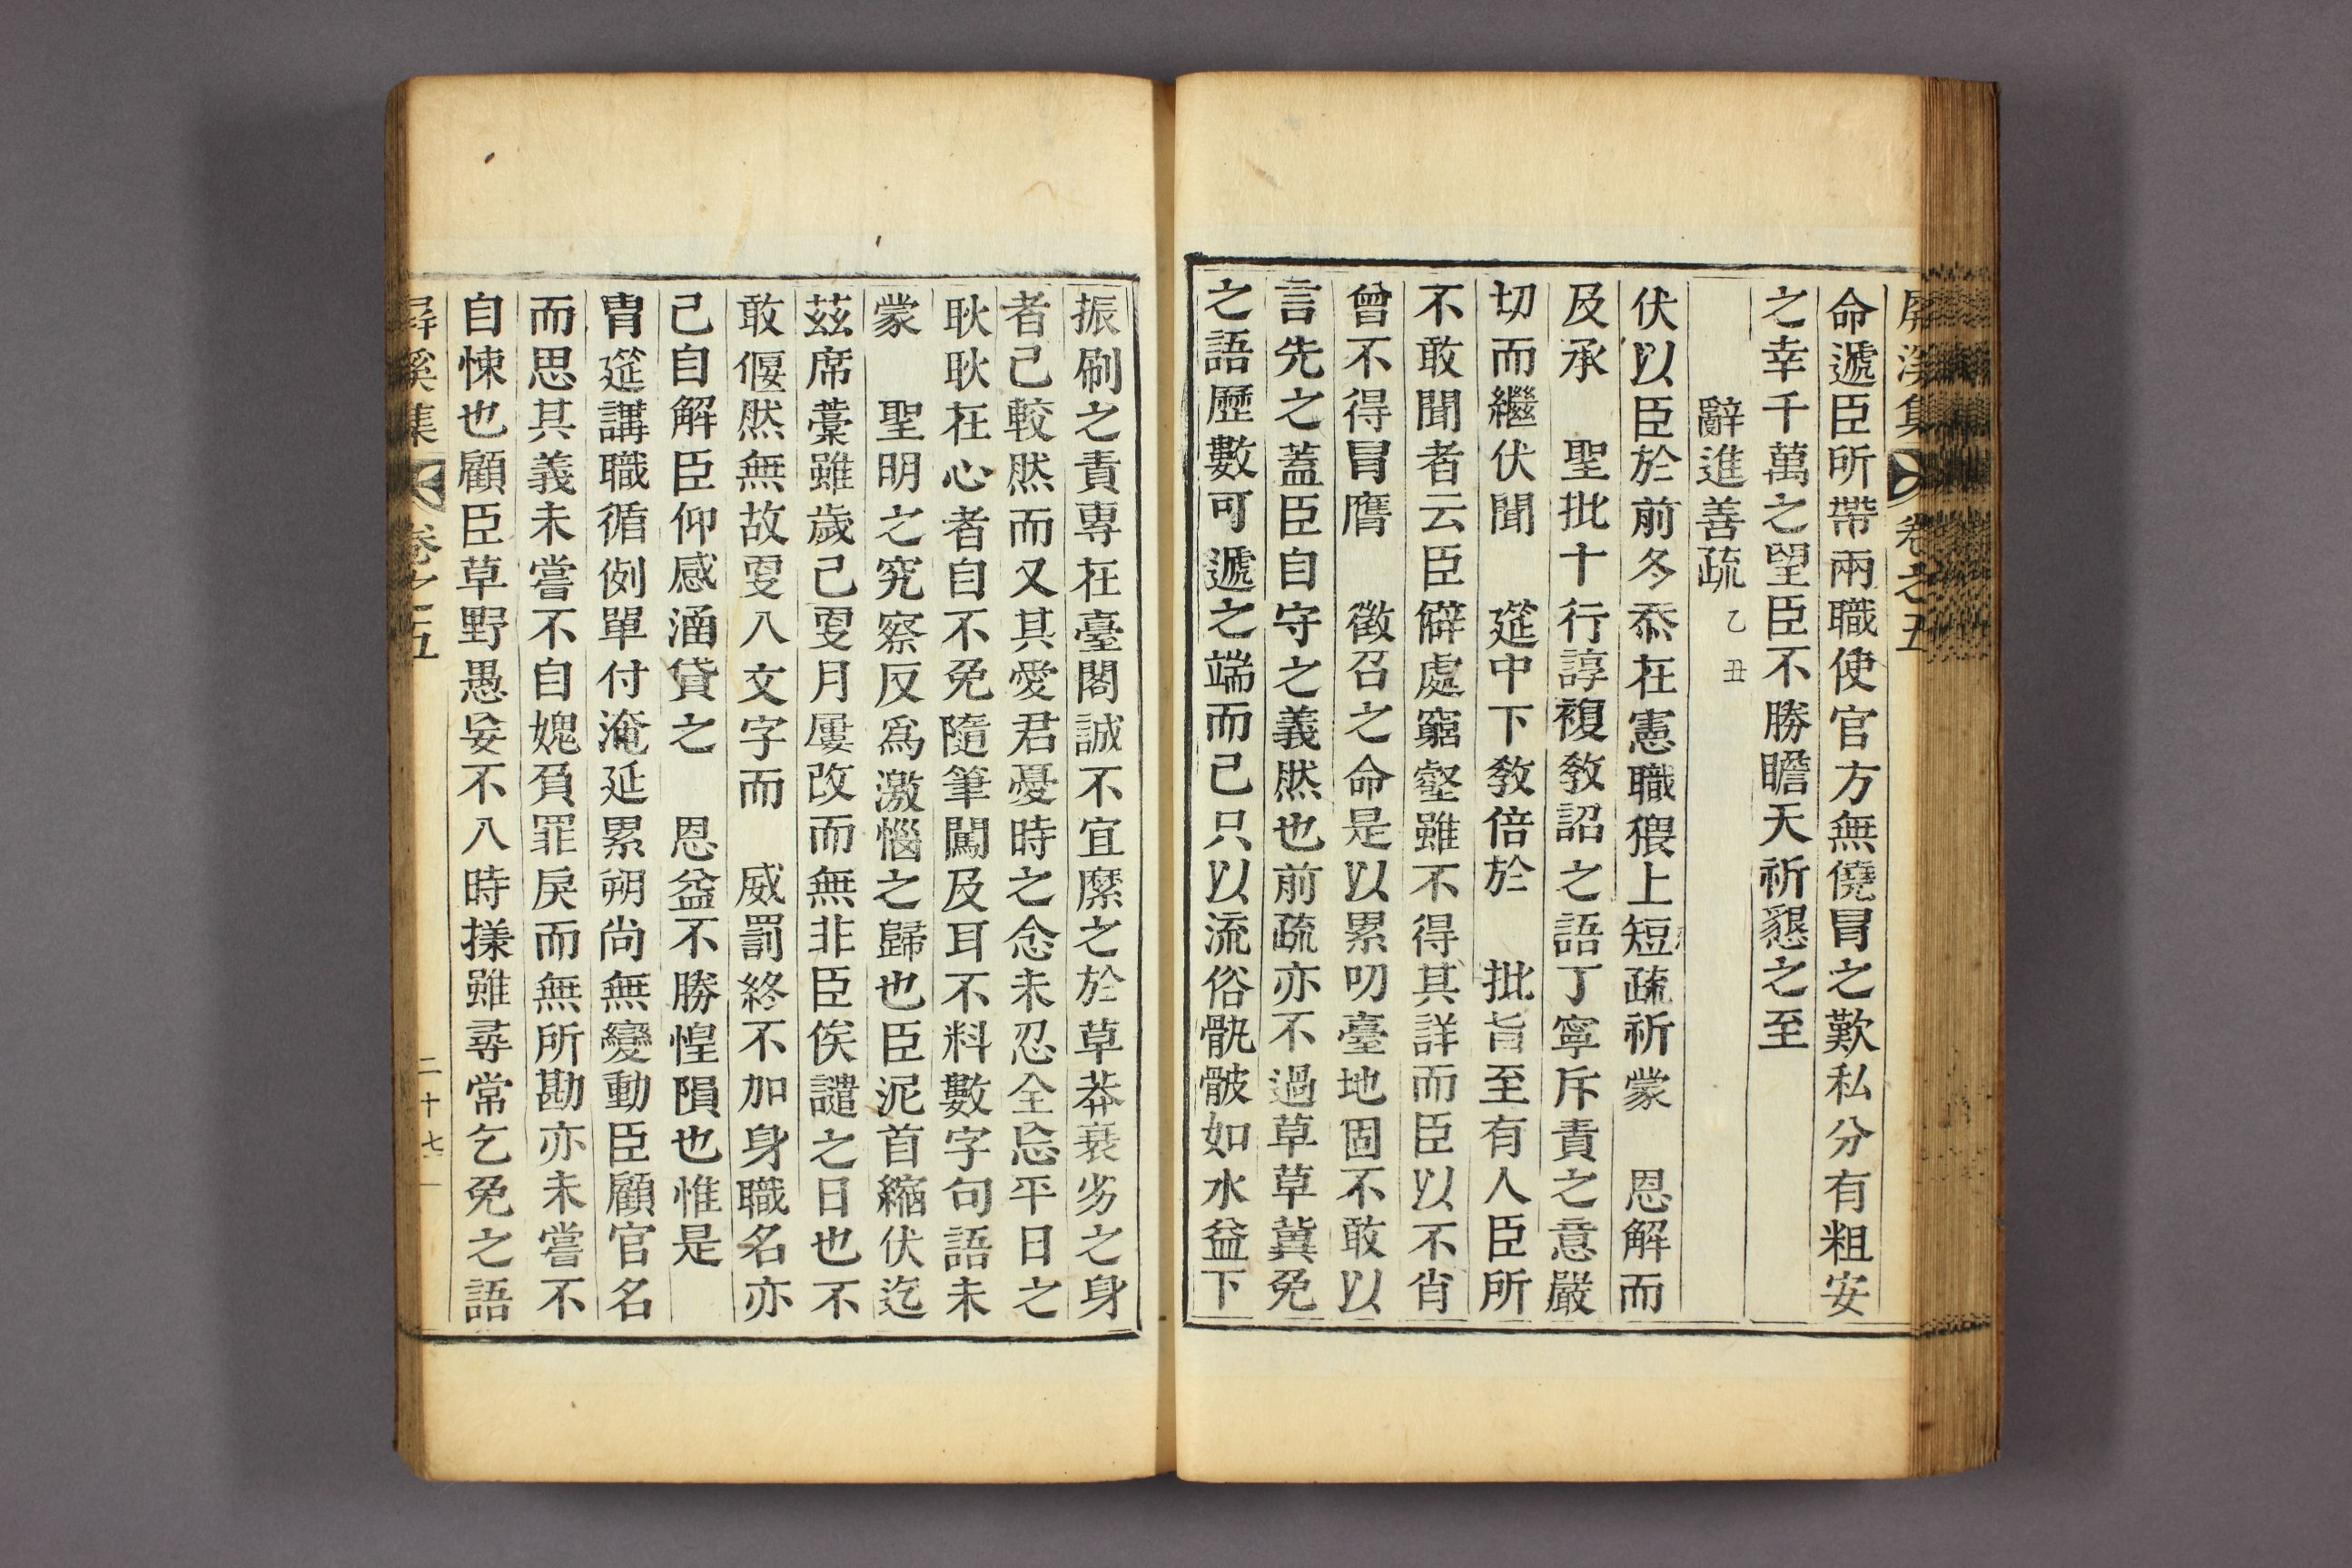 屏溪集 卷之五
命遞臣所帶兩職使官方無僥冒之歎私分有粗安
之幸千萬之望臣不勝瞻天祈懇之至
辭進善疏 乙丑
伏以臣於前冬忝在憲職猥上短疏祈蒙 恩解而
及承 聖批十行諄複敎詔之語丁寧斥責之意嚴
切而繼伏聞 筵中下敎倍於 批旨至有人臣所
不敢聞者云臣僻處窮壑雖不得其詳而臣以不肖
曾不得冒膺 徵召之命是以累叨臺地固不敢以
言先之蓋臣自守之義然也前疏亦不過草草冀免
之語歷數可遞之端而已只以流俗骫骳如水益下
振刷之責專在臺閣誠不宜縻之於草莽衰劣之身
者已較然而又其愛君憂時之念未忍全忘平日之
耿耿在心者自不免隨筆闖及耳不料數字句語未
蒙 聖明之究察反爲激惱之歸也臣泥首縮伏迄
玆席藁雖歲已更月屢改而無非臣俟譴之日也不
敢偃然無故更入文字而 威罰終不加身職名亦
已自解臣仰感涵貸之 恩益不勝惶隕也惟是
胄筵講職循例單付淹延累朔尚無變動臣顧官名
而思其義未嘗不自媿負罪戾而無所勘亦未嘗不
自悚也顧臣草野愚妄不入時㨾雖尋常乞免之語
屏溪集 卷之五 二十七